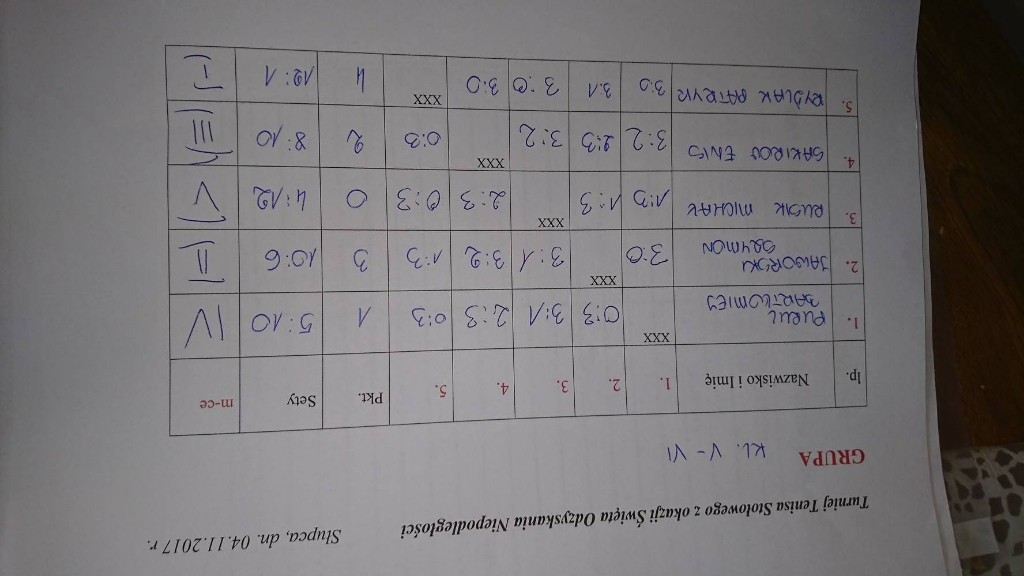 Słupca, dn. 04.11.2017 r.
Turniej Tenisa Stołowego z okazji Święta Odzyskania Niepodległości
GRUPA KL. V - VI
lp. Nazwisko i Imię 1. 2. 3. 4. 5. Pkt. Sety m-ce
1. BARTŁOMIEJ xxx 0:3 3:1 2:3 0:3 1 5:10 IV
2. JAWORSKI SZYMON 3:0 xxx 3:1 3:2 1:3 3 10:6 II
3. RUSIK MICHAŁ 1:3 1:3 xxx 2:3 0:3 0 4:12 V
4. SAKIROV ENIS 3:2 2:3 3:2 xxx 0:3 2 8:10 III
5. PATRYK 3:0 3:1 3:0 3:0 xxx 4 12:1 I